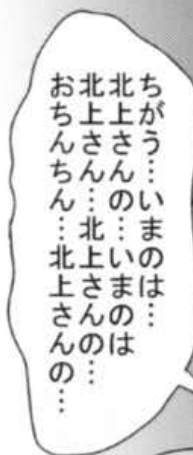 ちがう…いまのは…
北上さんの…いまのは
北上さん…北上さんの…
おちんちん…北上さんの…